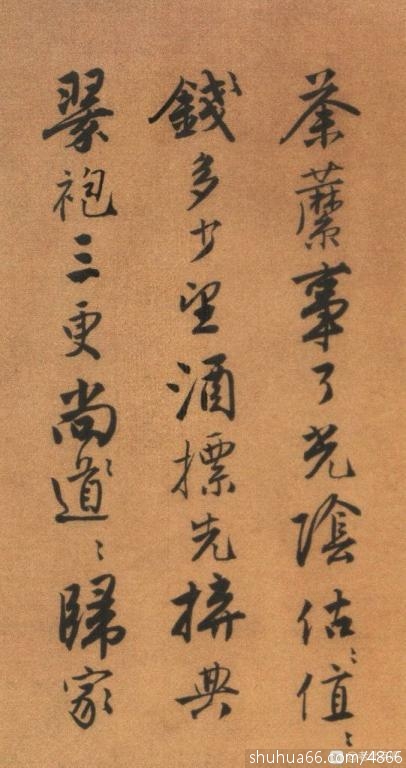 荼䕷事了光陰估〻值〻
錢多少望酒摽先拚典
翠袍三更尚〻道〻歸家
shuhua66.com/4866